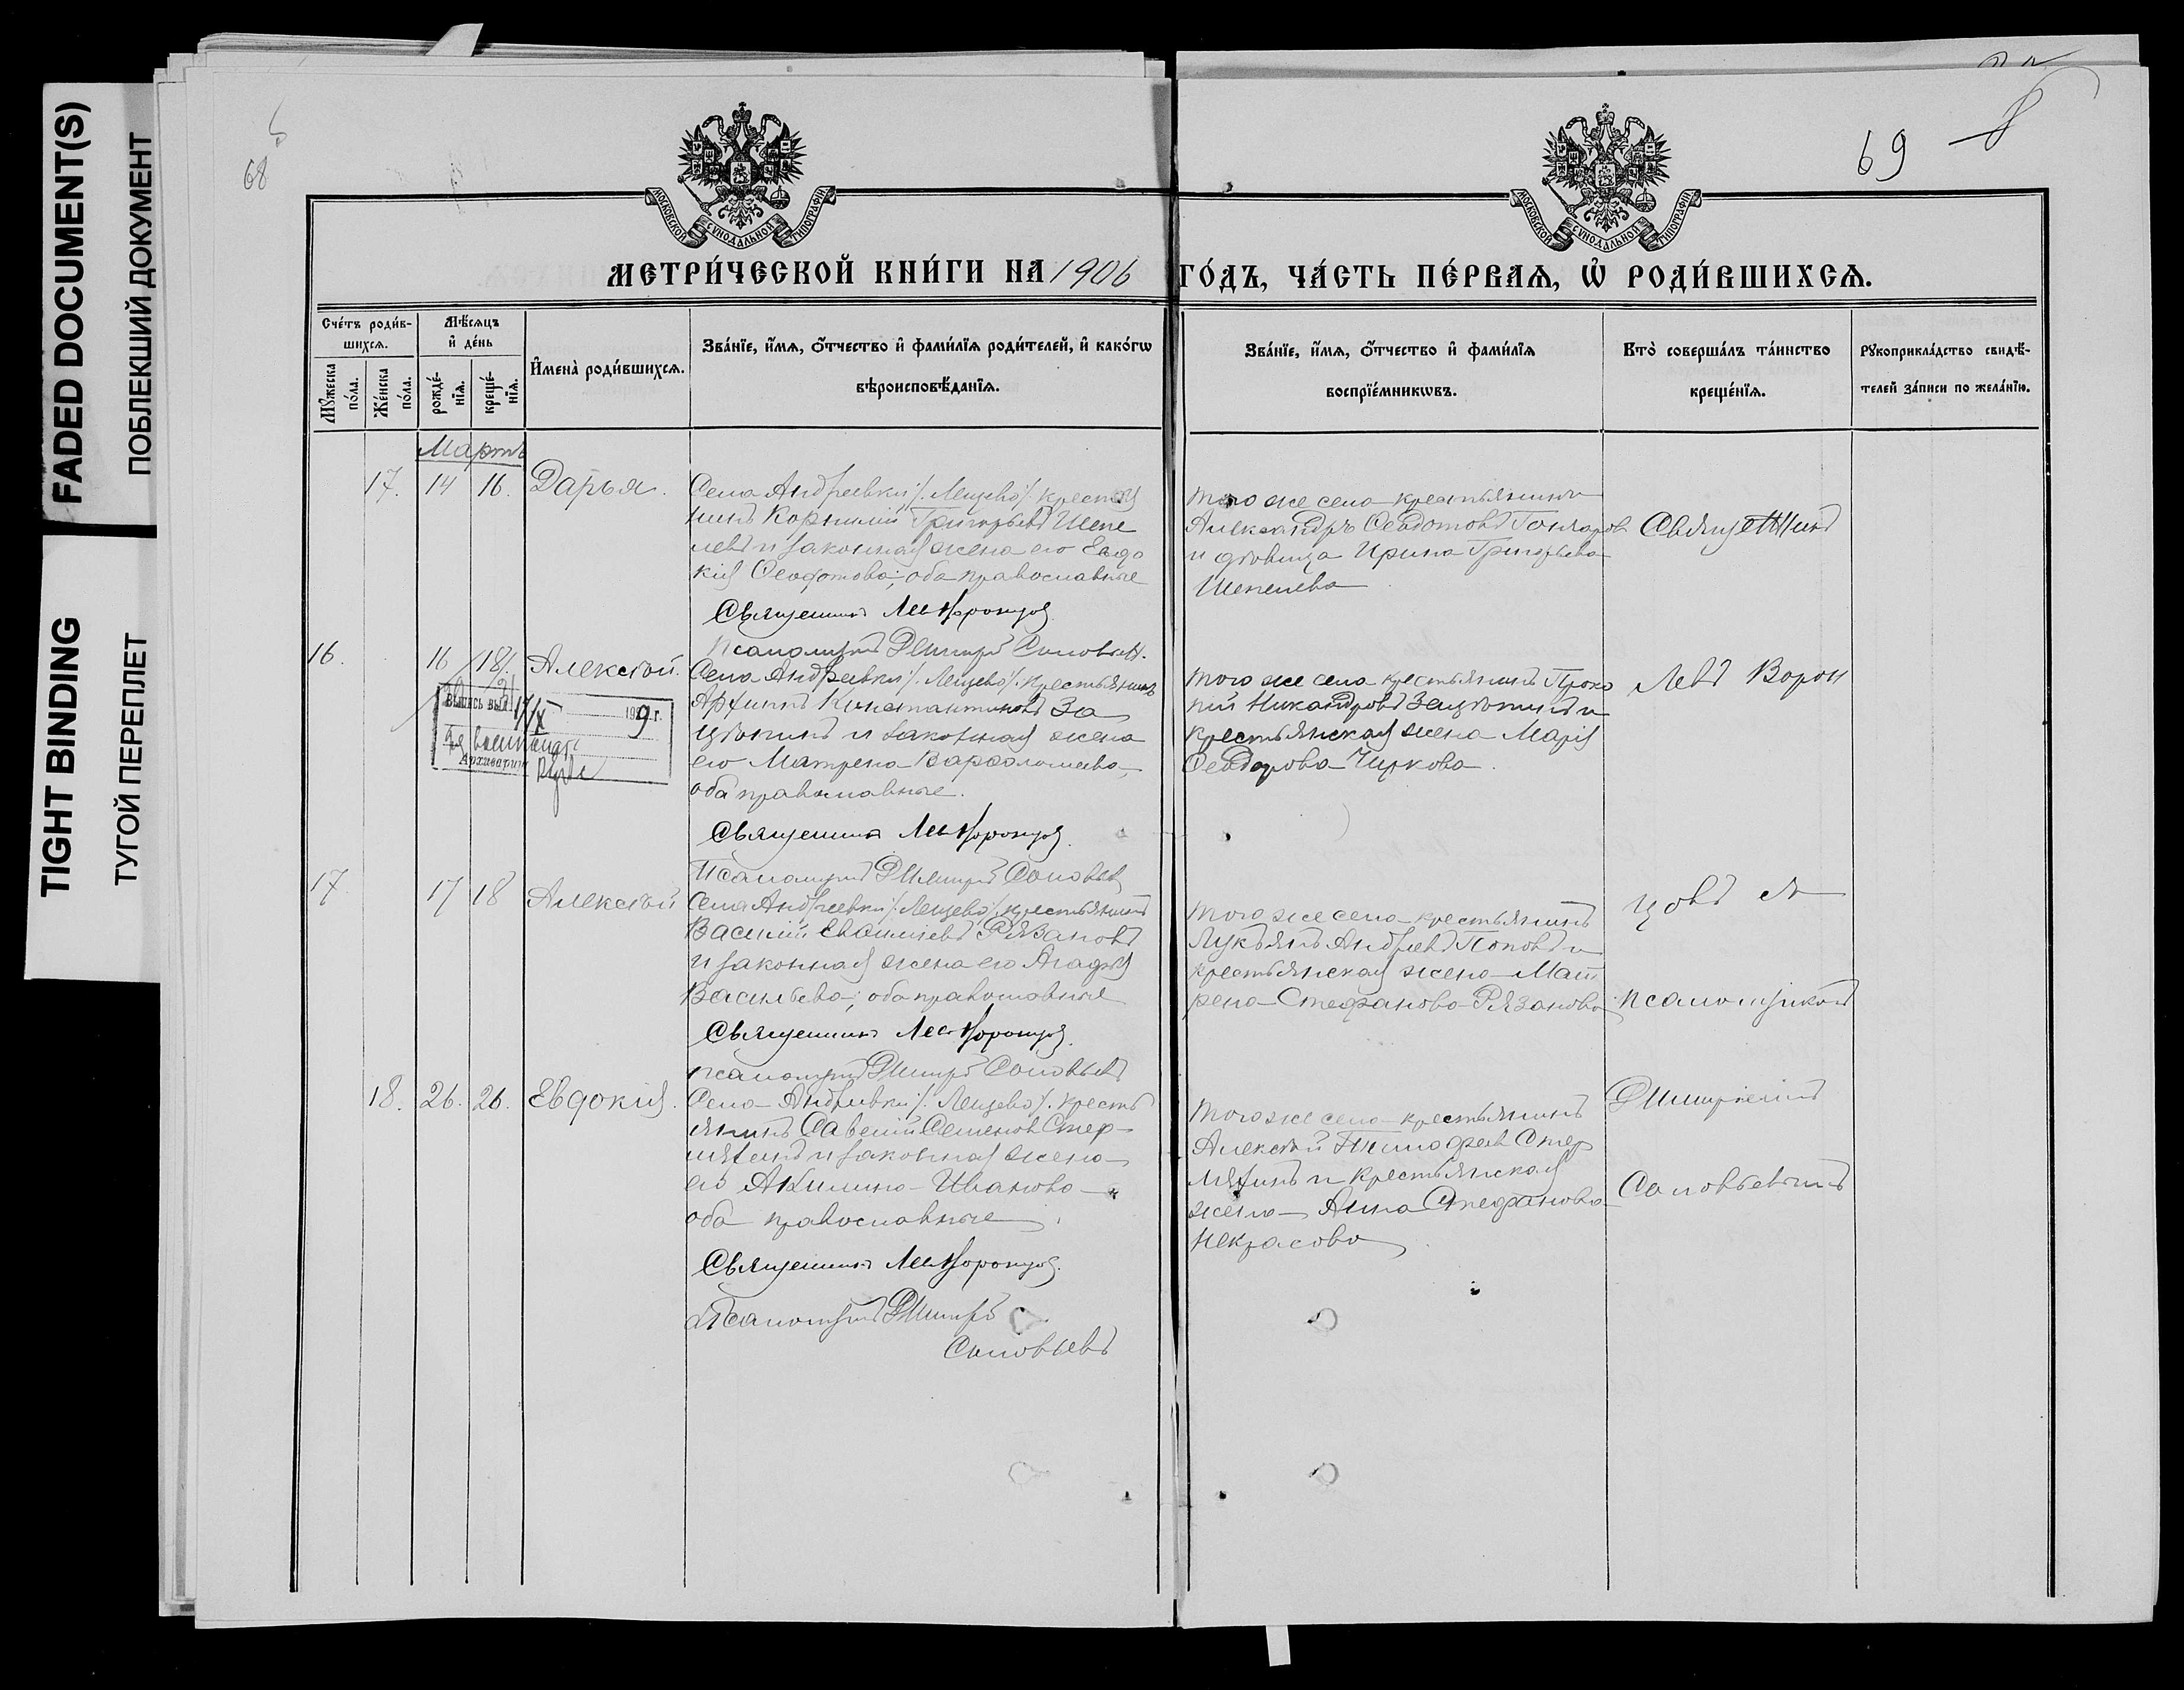 FADED DOCUMENT(S)
ПОБЛЕКШИЙ ДОКУМЕНТ
TIGHT BINDING
ТУГОЙ ПЕРЕПЛЕТ
68
69
МОСКОВСКОЙ СѴНОДАЛЬНОЙ ТИПОГРАФІИ
МОСКОВСКОЙ СѴНОДАЛЬНОЙ ТИПОГРАФІИ
МЕТРИ́ЧЕСКОЙ КНИ́ГИ НА 1906 ГО́ДЪ, ЧА́СТЬ ПЕ́РВАѦ, Ѡ҆ РОДИ́ВШИХСѦ.
Сче́тъ роди́в-
шихсѧ.
Мꙋ́жеска по́ла.
Же́нска по́ла.
Мѣ́сѧцъ и҆ де́нь
рожде́-нїѧ.
креще́-нїѧ.
И҆мена̀ роди́вшихсѧ.
Зва́нїе, и҆́мѧ, ѻ҆́тчество и҆ фами́лїѧ роди́телей, и҆ како́гѡ
вѣроисповѣ́данїѧ.
Зва́нїе, и҆́мѧ, ѻ҆́тчество и҆ фами́лїѧ
воспрїе́мникѡвъ.
Кто̀ соверша́лъ та́инство
креще́нїѧ.
Рꙋкоприкла́дство свидѣ́-
телей за́писи по жела́нїю.
Мартъ
17. 14 16. Дарья.
Села Андреевки /. Лещево /. крестья
нинъ Корнилій Григорьевъ Шепе
левъ и законная жена его Евдо
кія Ѳеодотова; оба православные
Священникъ Левъ Воронцовъ.
Псаломщикъ Дмитрій Соловьевъ.
того же села крестьянинъ
Александръ Ѳеодотовъ Гончаров
и дѣвица Ирина Григорьева
Шепелева
Священникъ
16. 16 18 Алексѣй.
Села Андреевки /. Лещево /. крестьянинъ
Архипъ Константиновъ За
цѣпинъ и законная жена
его Матрена Варѳоломеева,
оба православные.
Священникъ Левъ Воронцовъ.
Псаломщикъ Дмитрій Соловьевъ
Выпись выд.
19 9 г.
Архивариус
того же села крестьянинъ Проко
пій Никандровъ Зацѣпинъ и
крестьянская жена Марія
Ѳеодорова Чиркова.
Левъ Ворон
17. 17 18 Алексѣй
Села Андреевки /. Лещево /. крестьянинъ
Василій Рязановъ
и законная жена его Агафія
Васильева; оба православные
Священникъ Левъ Воронцовъ.
Псаломщикъ Дмитрій Соловьевъ
того же села крестьянинъ
Лукьянъ Андреевъ Поповъ и
крестьянская жена Мат
рена Стефанова Рязанова.
цовъ съ
псаломщикомъ
18. 26. 26. Евдокія.
Села Андреевки /. Лещево /. кресть
янинъ Савелій Семеновъ Стер-
лягинъ и законная жена
его Акилина Иванова
оба православные.
Священникъ Левъ Воронцовъ.
Псаломщикъ Дмитрій
Соловьевъ
того же села крестьянинъ
Алексѣй Тимофеевъ Стер
лягинъ и крестьянская
жена Анна Стефанова
Некрасова.
Дмитріемъ
Соловьевымъ